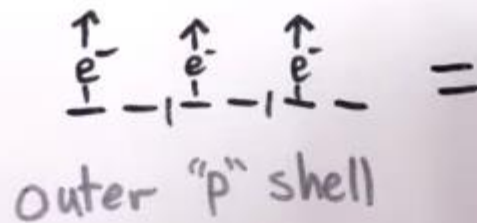 e⁻ e⁻ e⁻ =
outer "p" shell